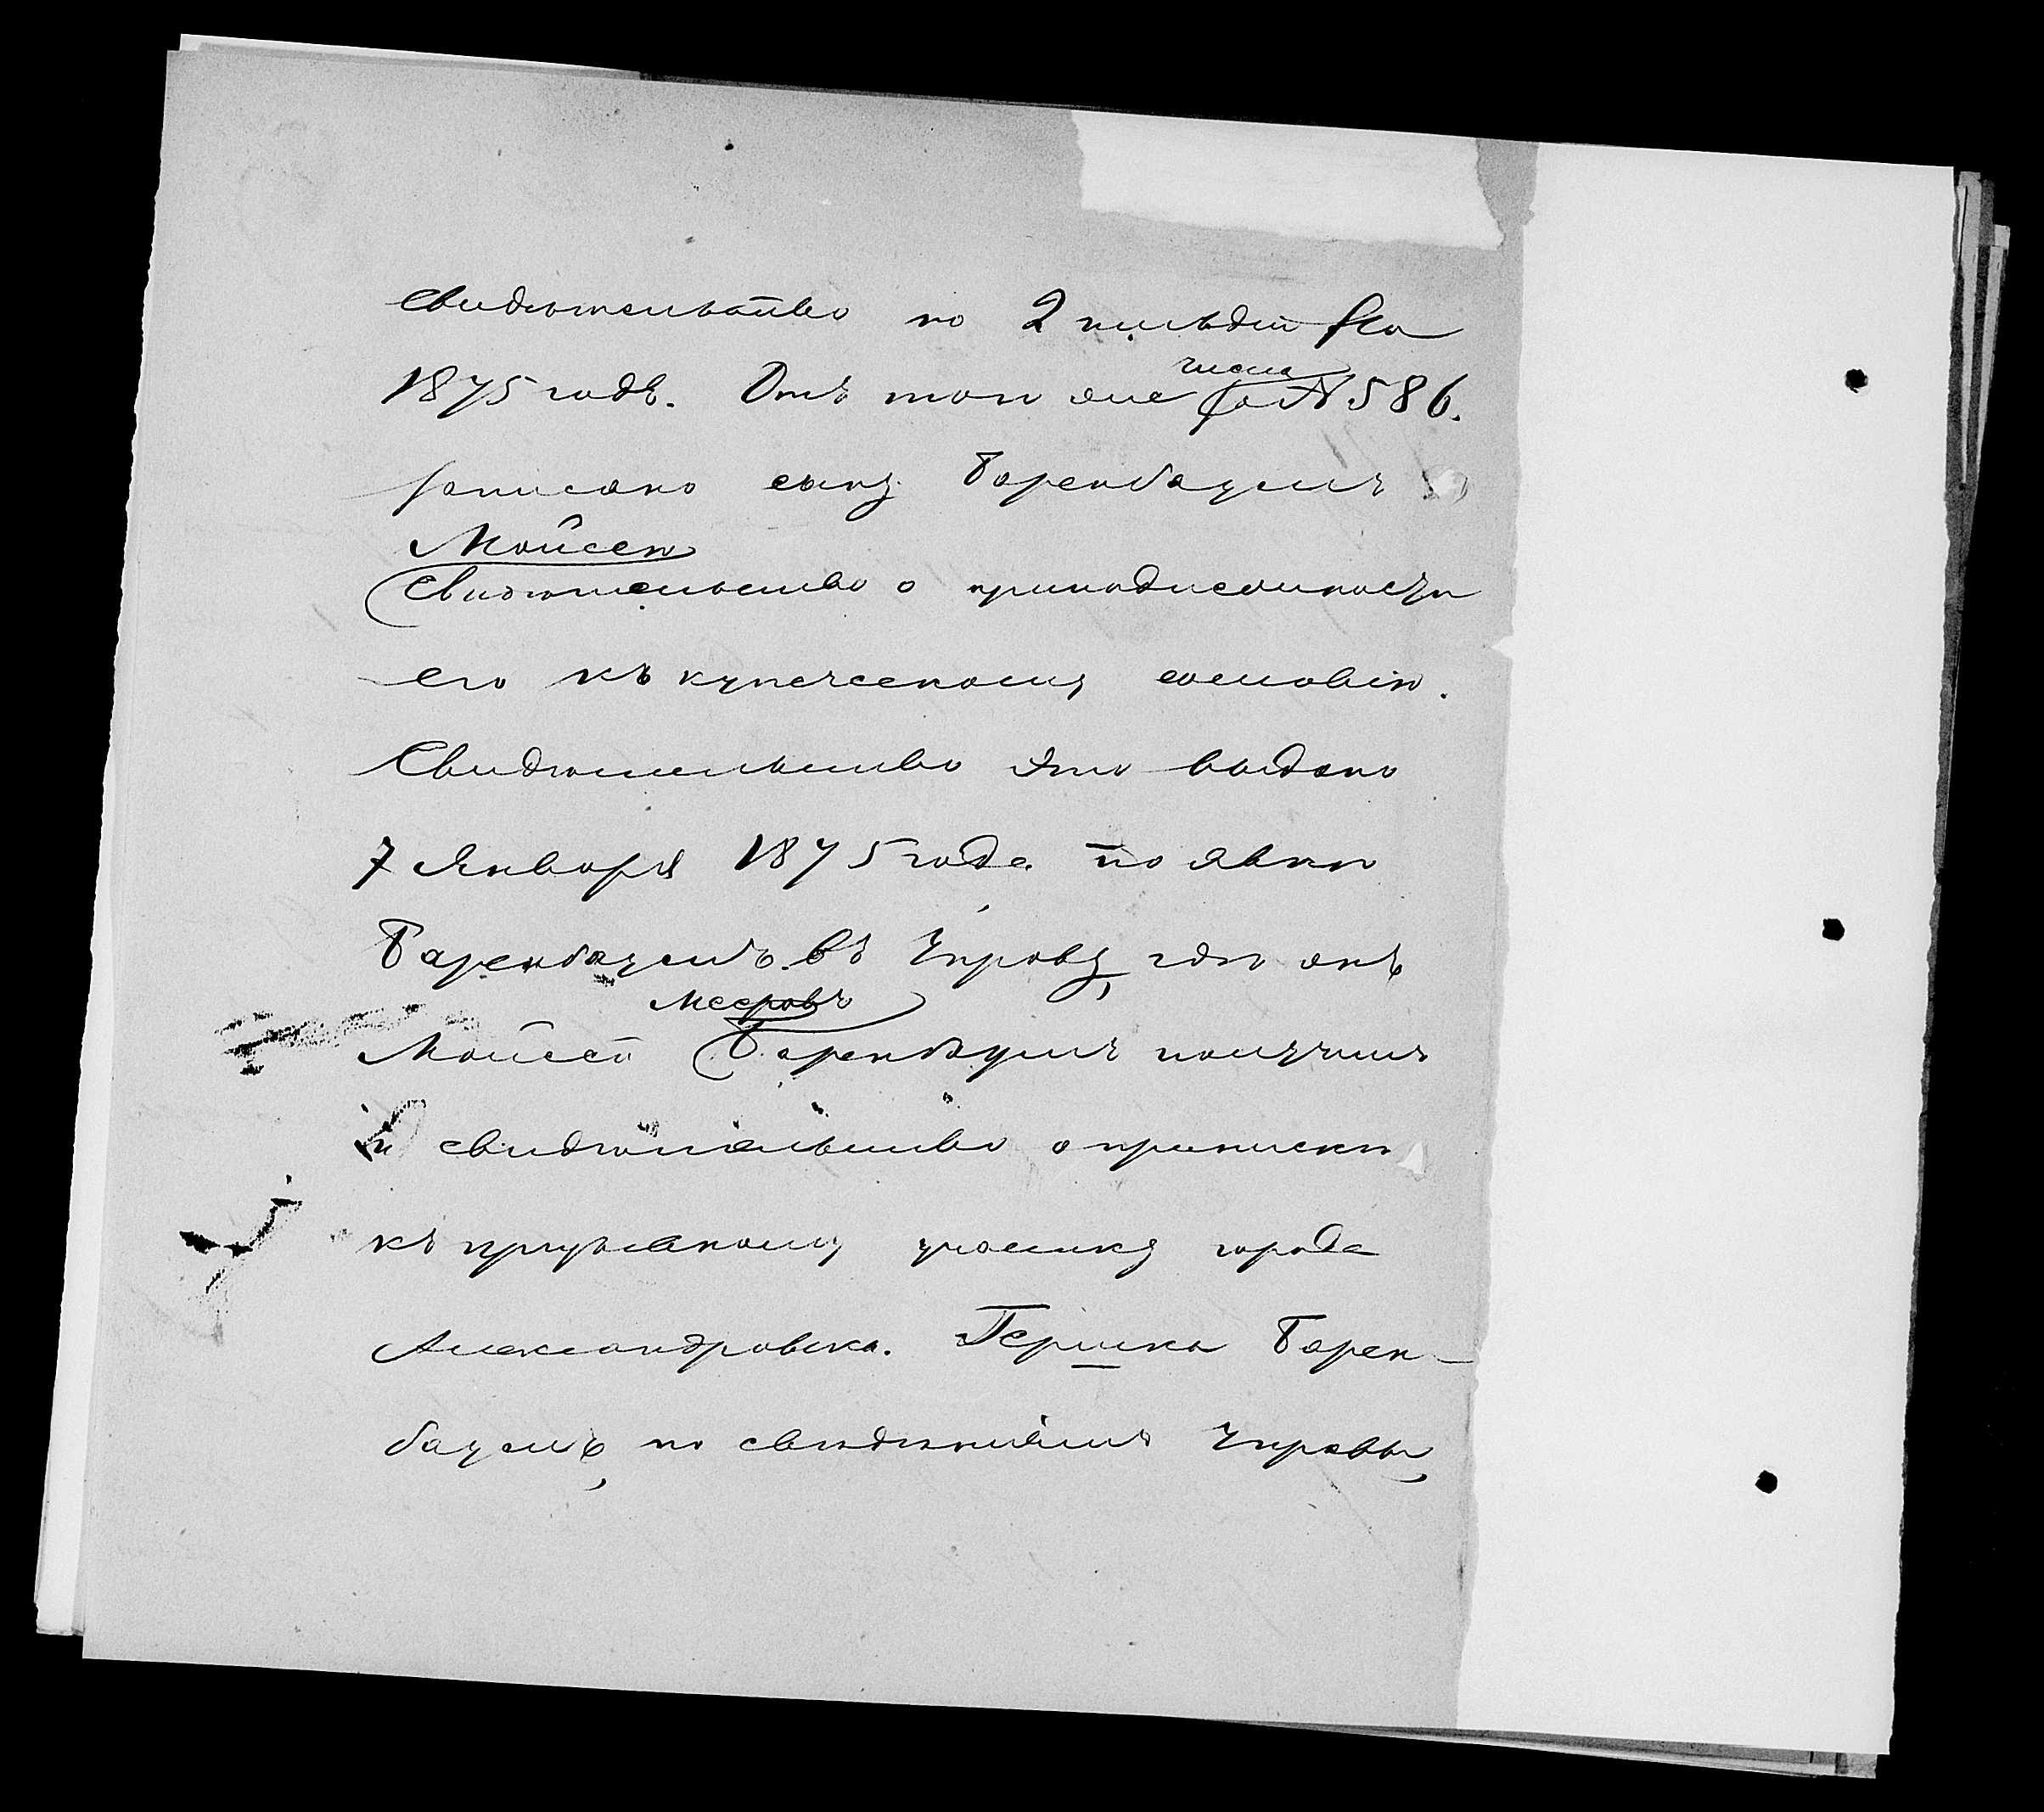 свидѣтельство по 2 гильдіи на
1875 годъ. Отъ того же числа за № 586.
записано сыну Баренбаумъ
Мойсею
свидѣтельство о приподисанности
его къ купеческому сословію.
Свидѣтельство это выдано
7 Января 1875 года по явкѣ
Баренбаумъ въ Управу, гдѣ онъ
Мееровъ
Мойсей Баренбаумъ получилъ
и свидѣтельство о припискѣ
къ призывному участку города
Александровска. Гершка Барен-
баумъ, по свѣдѣніямъ Управы,